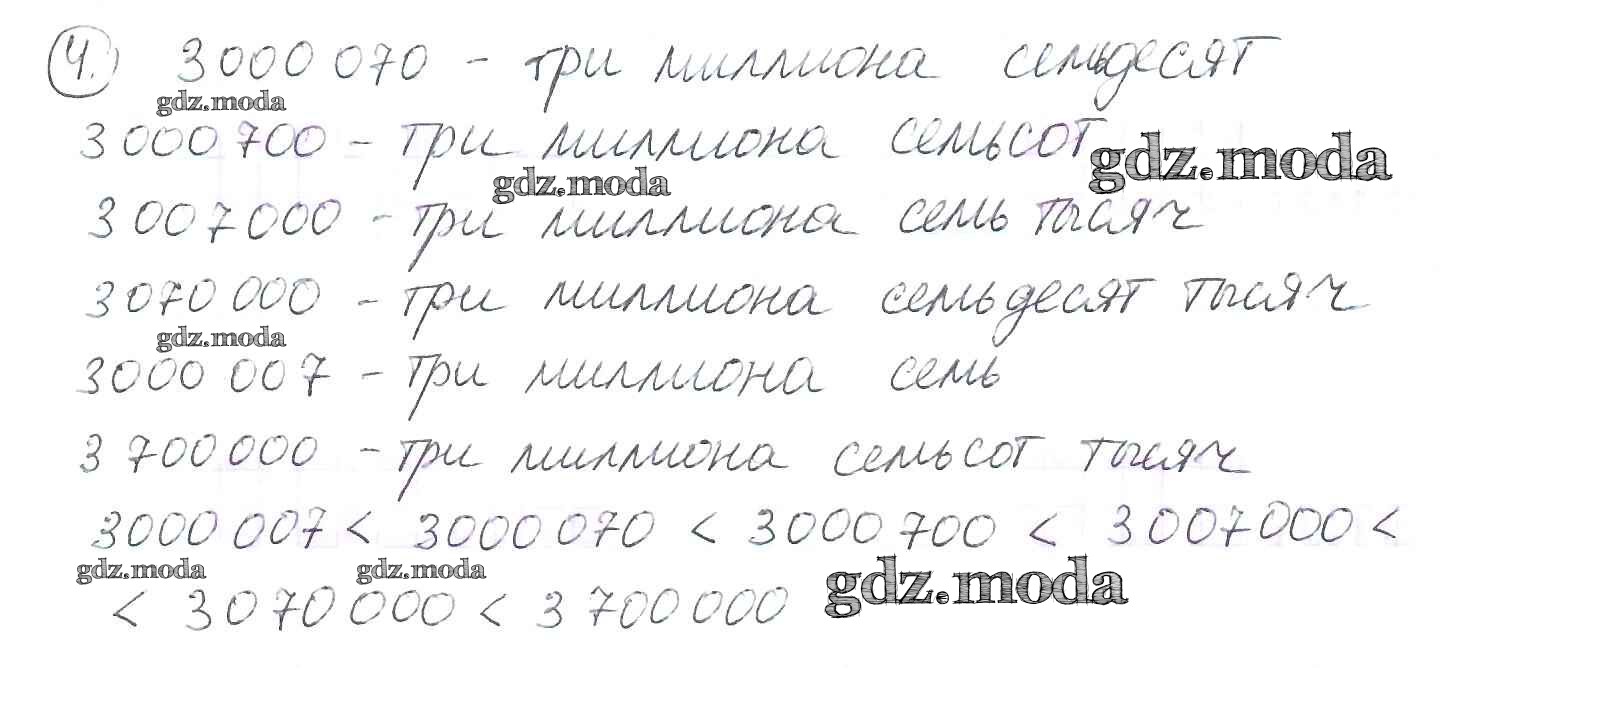 4. 3000 070 - три миллиона семьдесят
gdz.moda
3 000 700 - три миллиона семьсот
gdz.moda
gdz.moda
3 007 000 - три миллиона семь тысяч
3 070 000 - три миллиона семьдесят тысяч
gdz.moda
3000 007 - три миллиона семь
3 700 000 - три миллиона семьсот тысяч
3000 007 < 3000 070 < 3 000 700 < 3 007 000 <
gdz.moda gdz.moda gdz.moda
< 3 070 000 < 3 700 000